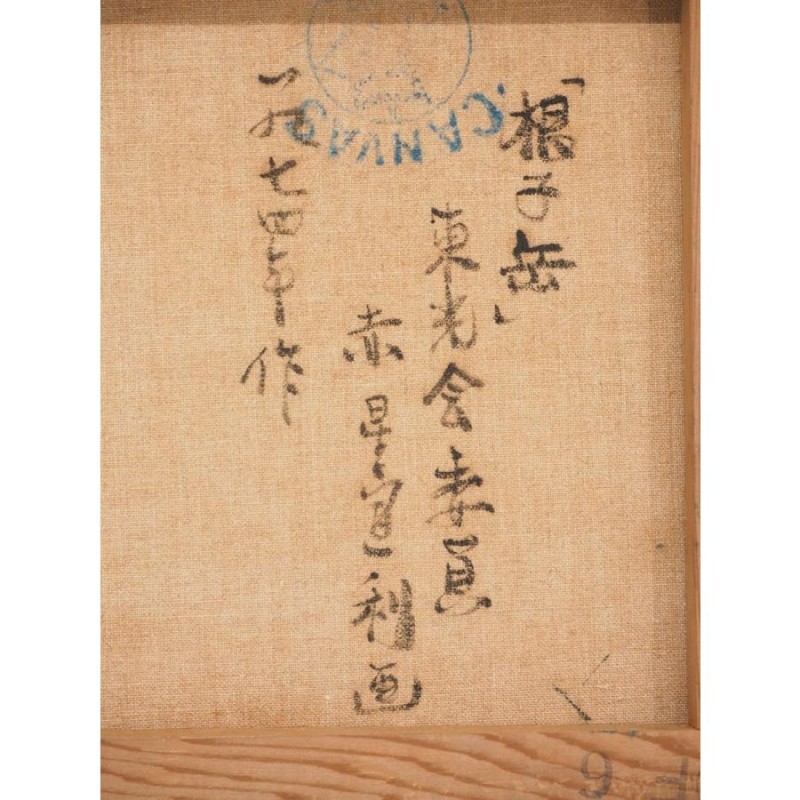 「根子岳」
東光会委員
赤星宣利画
一九七四年作
CANVAS
9